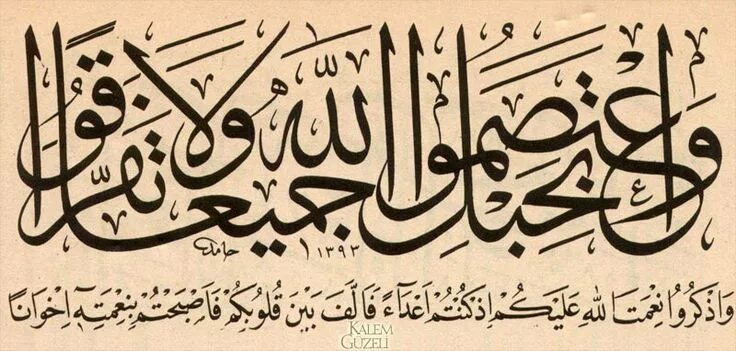 وَاعْتَصِمُوا بِحَبْلِ اللهِ جَمِيعًا وَلَا تَفَرَّقُوا
حامد ١٣٩٣
وَاذْكُرُوا نِعْمَتَ اللهِ عَلَيْكُمْ اِذْ كُنْتُمْ اَعْدَآءً فَاَلَّفَ بَيْنَ قُلُوبِكُمْ فَاَصْبَحْتُمْ بِنِعْمَتِهٖٓ اِخْوَانًا
KALEM
GÜZELİ